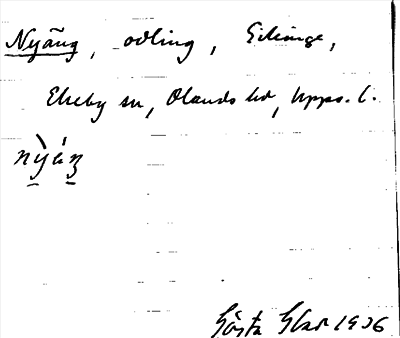 Nyäng, odling, Gilinge,
Ekeby sn, Olands hd, Upps. l.
nỳáŋ
Gösta 1936